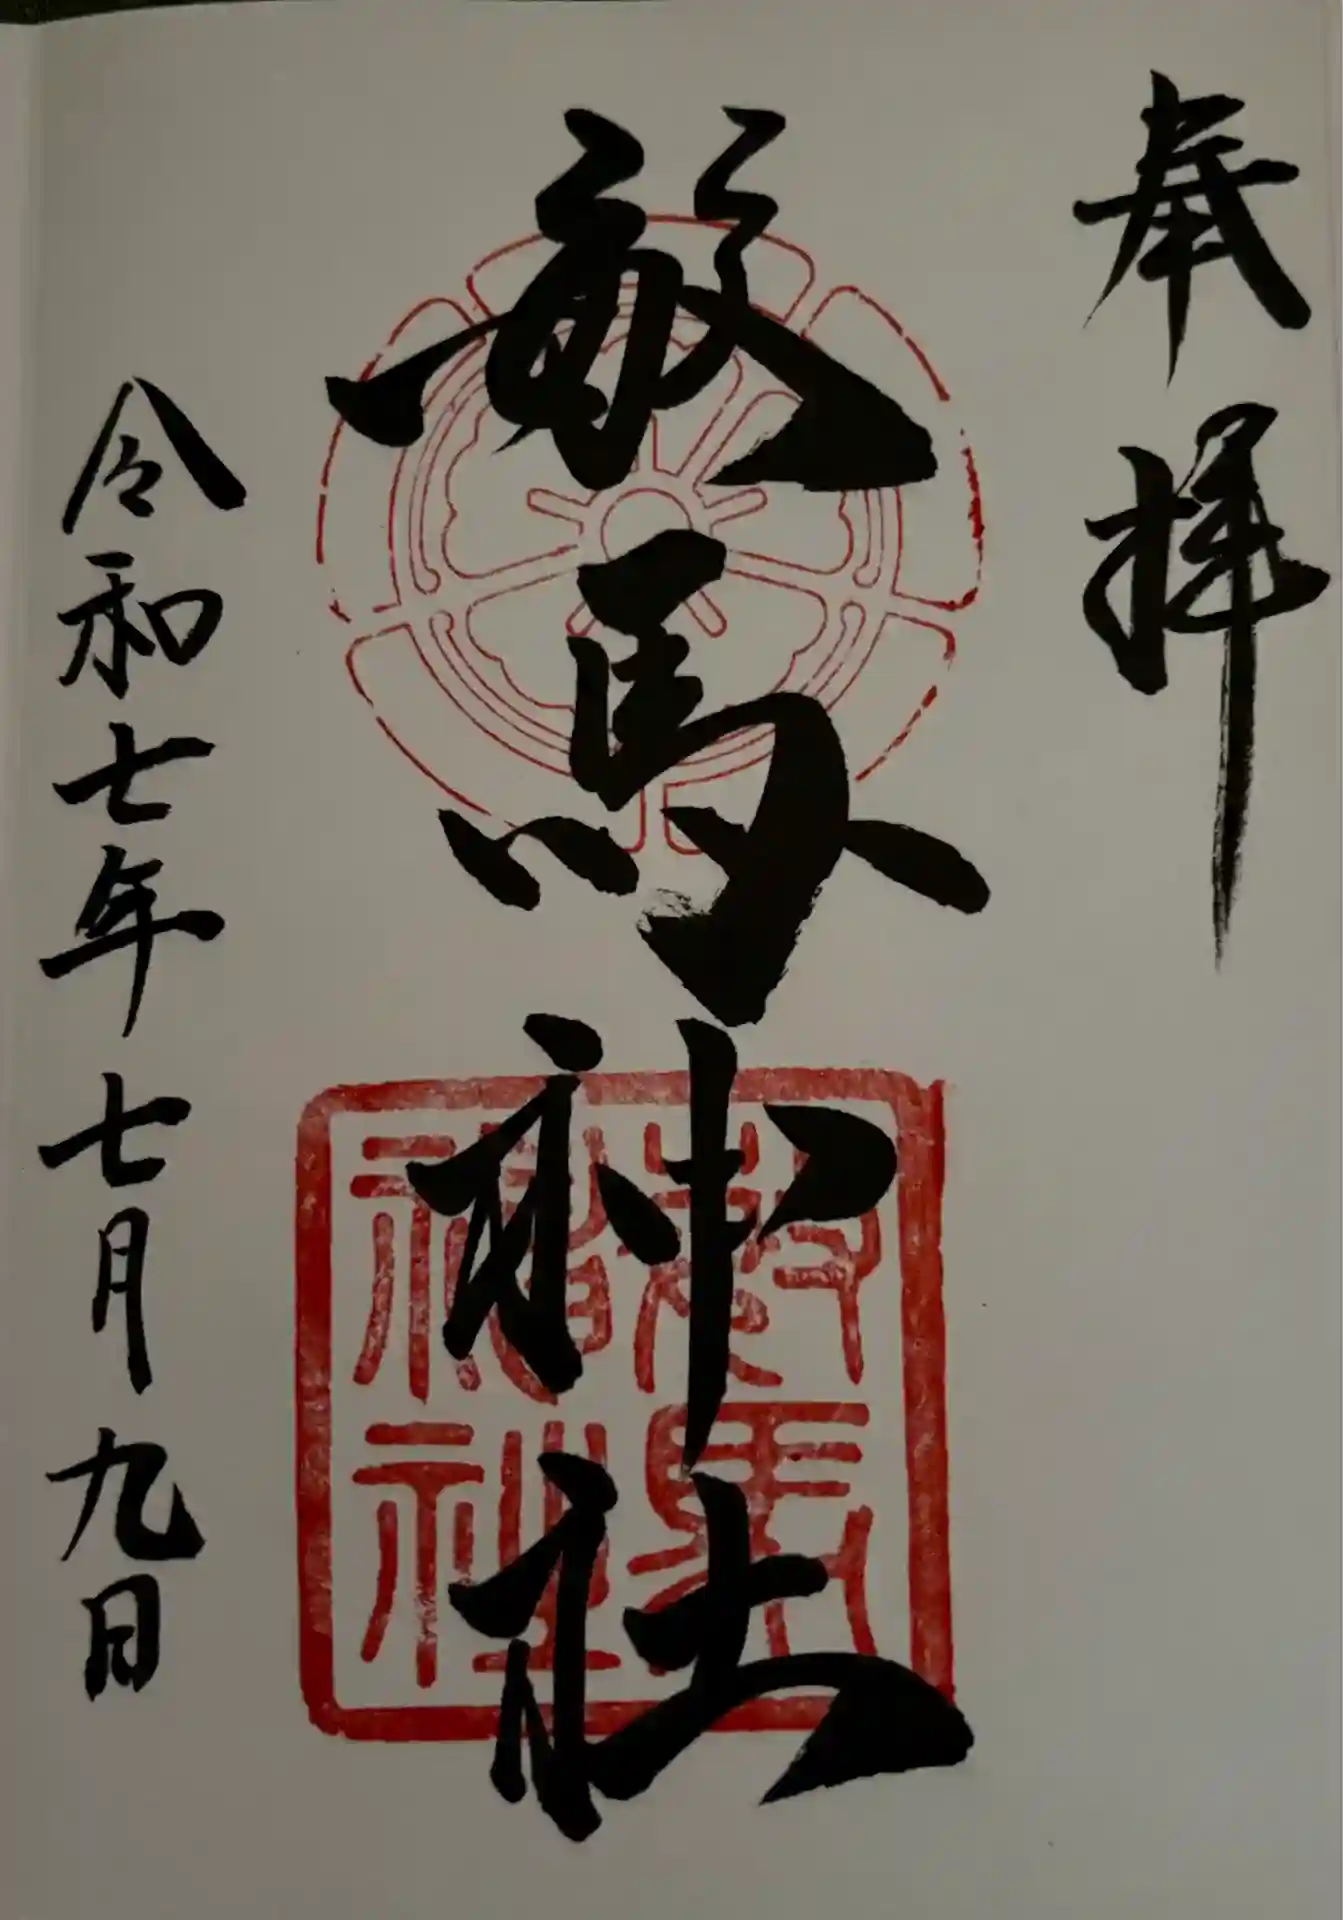 奉拝
敏馬神社
敏馬
神社
令和七年七月九日